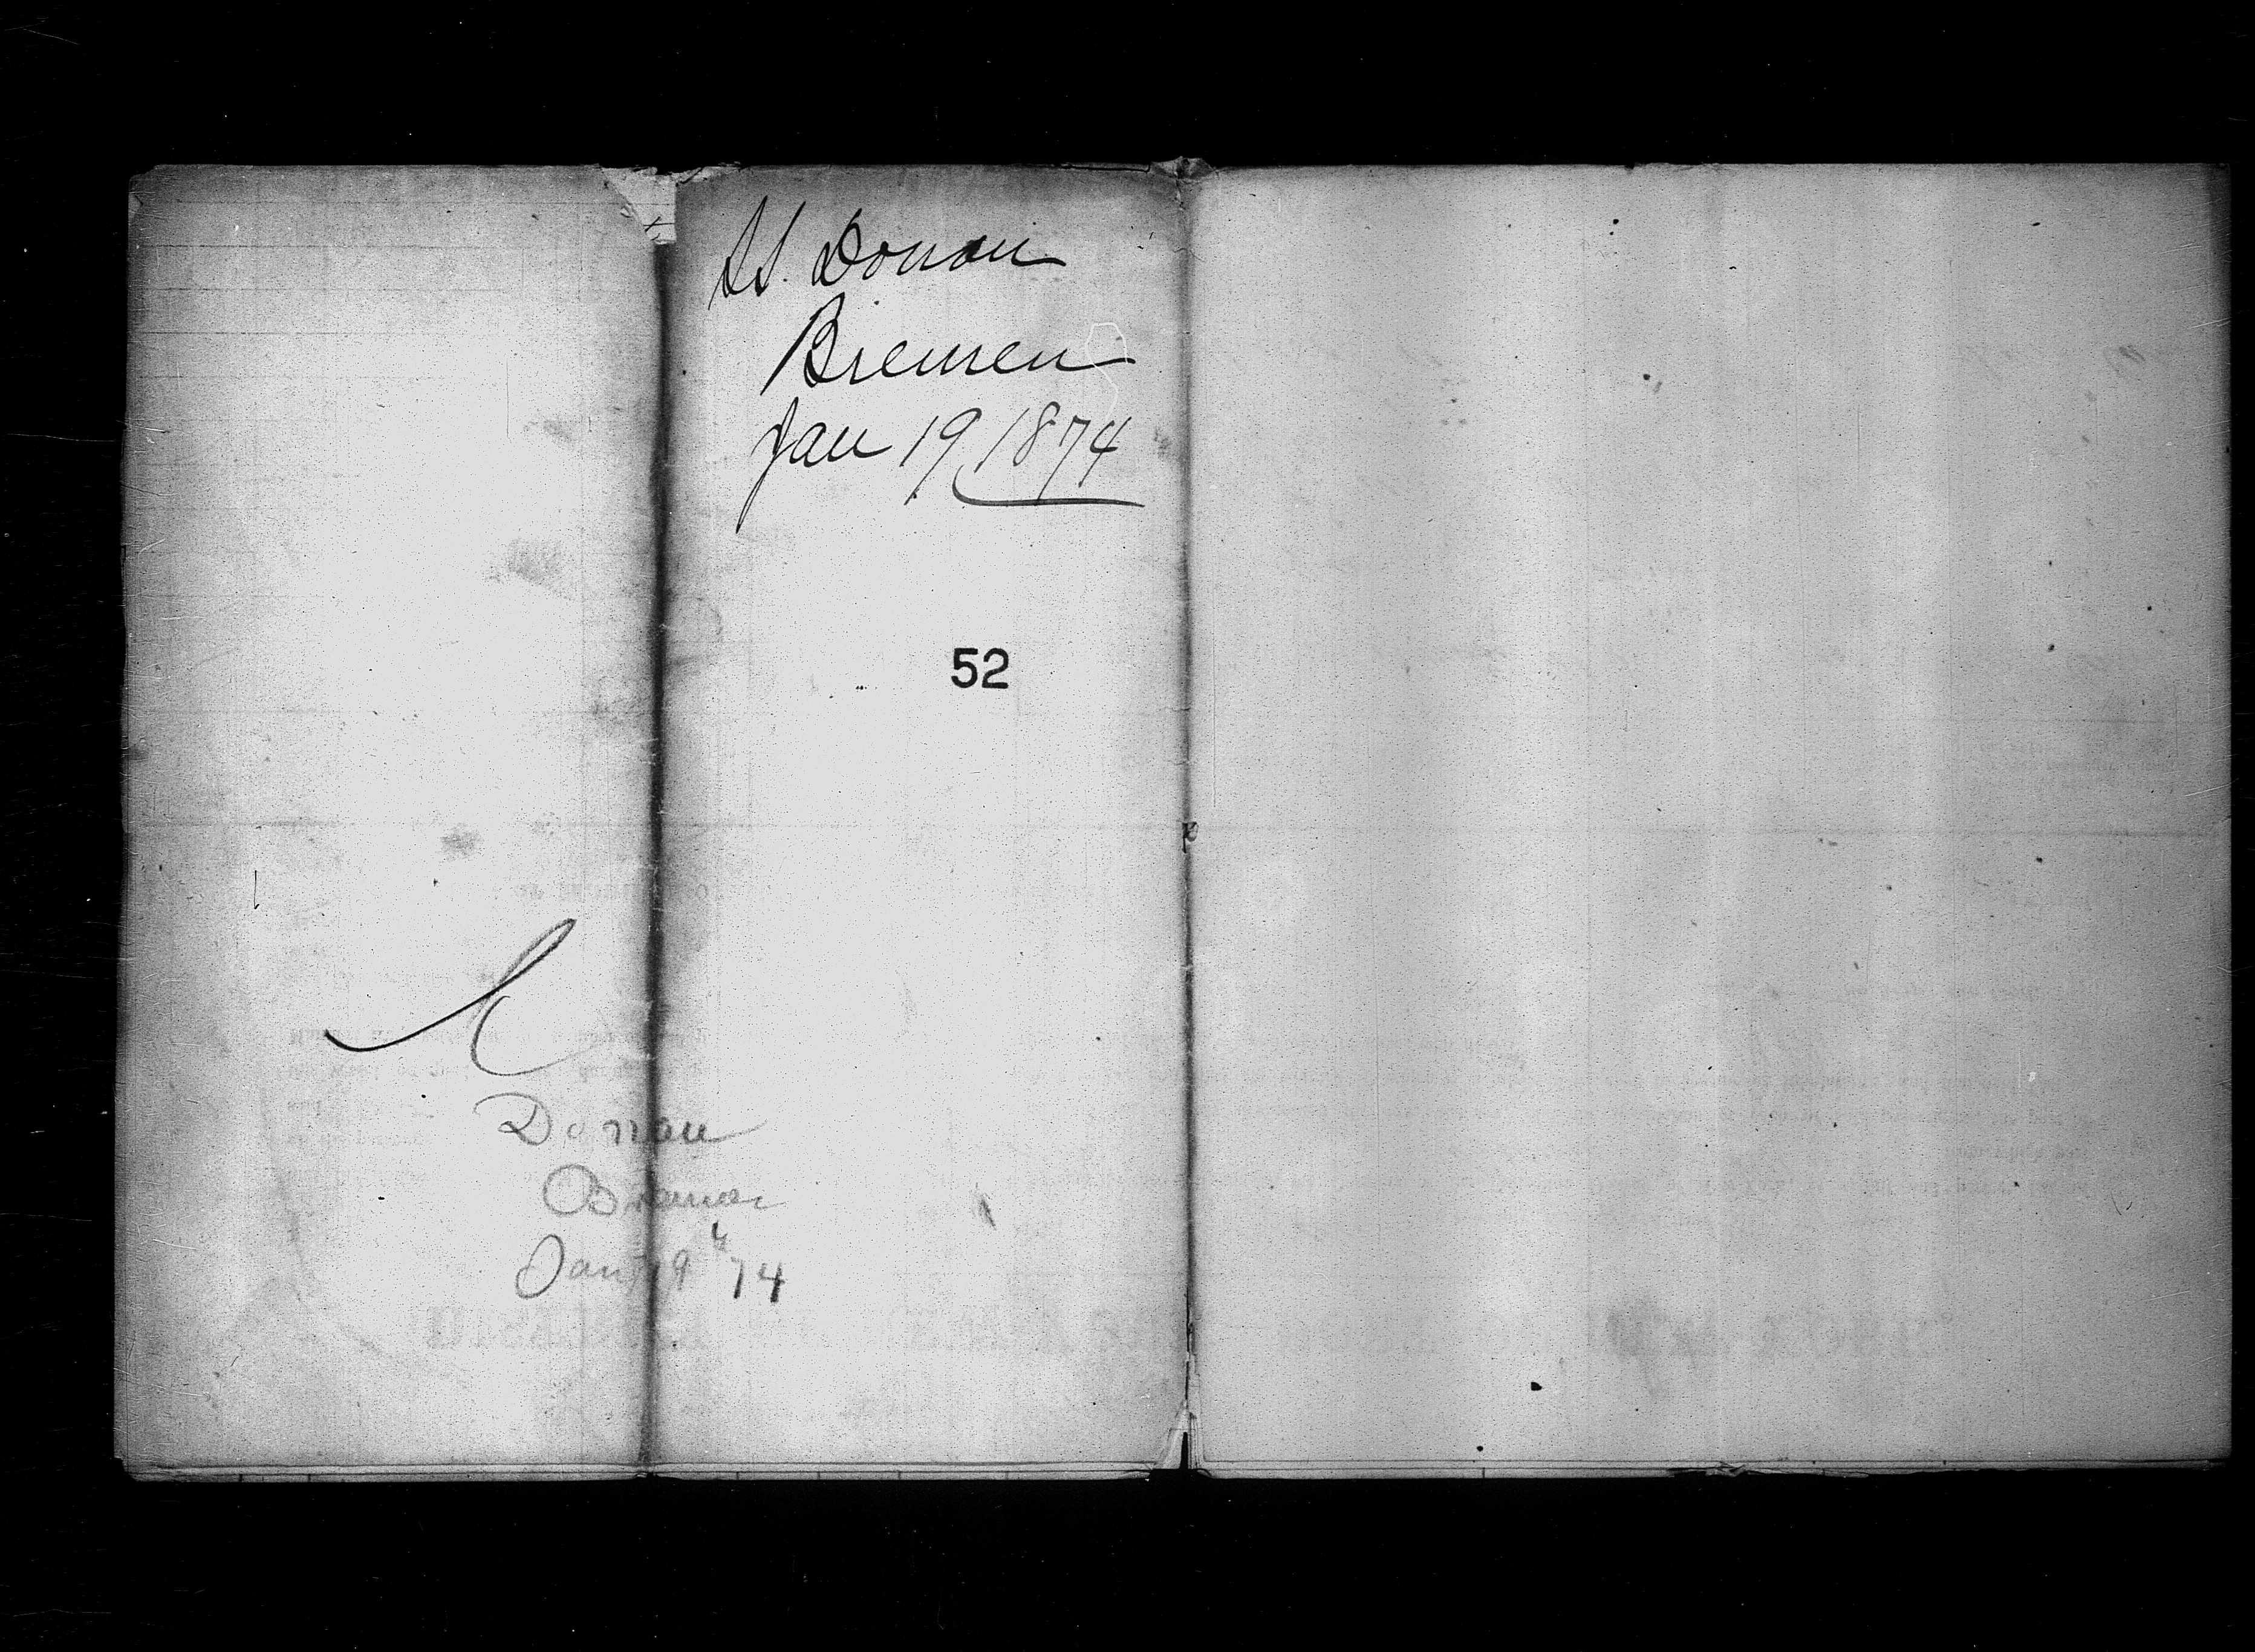 SS. Donau
Bremen
Jan 19 1874
52
Donau
Bremen
Jan 19 74